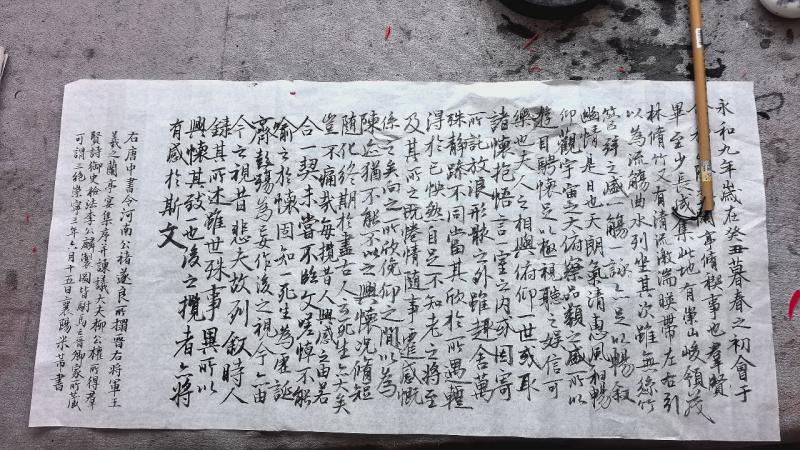 永和九年歲在癸丑暮春之初會于
蘭亭脩稧事也羣賢
畢至少長咸集此地有崇山峻領茂
林脩竹又有清流激湍映帶左右引
以為流觴曲水列坐其次雖無絲竹
管弦之盛一觴一詠亦足以暢敘
幽情是日也天朗氣清惠風和暢
仰觀宇宙之大俯察品類之盛所以
遊目騁懷足以極視聽之娛信可
樂也夫人之相與俯仰一世或取
諸懷抱悟言一室之內或因寄
所託放浪形骸之外雖趣舍萬
殊靜躁不同當其欣於所遇蹔
得於己快然自足不知老之將至
及其所之既惓情隨事遷感慨
係之矣向之所欣俛仰之間以為
陳迹猶不能不以之興懷況脩短
隨化終期於盡古人云死生亦大矣
豈不痛哉每攬昔人興感之由若
合一契未嘗不臨文嗟悼不能
喻之於懷固知一死生為虛誕
齊彭殤為妄作後之視今亦由
今之視昔悲夫故列敘時人
錄其所述雖世殊事異所以
興懷其致一也後之攬者亦將
有感於斯文
右唐中書令河南公褚遂良所摹晉右將軍王
羲之蘭亭宴集序并諫議大夫柳公權所得羣
賢詩御史檢法李公麟製圖皆駙馬王晉卿家所藏
可謂三絕崇寧三年六月十五日襄陽米芾書